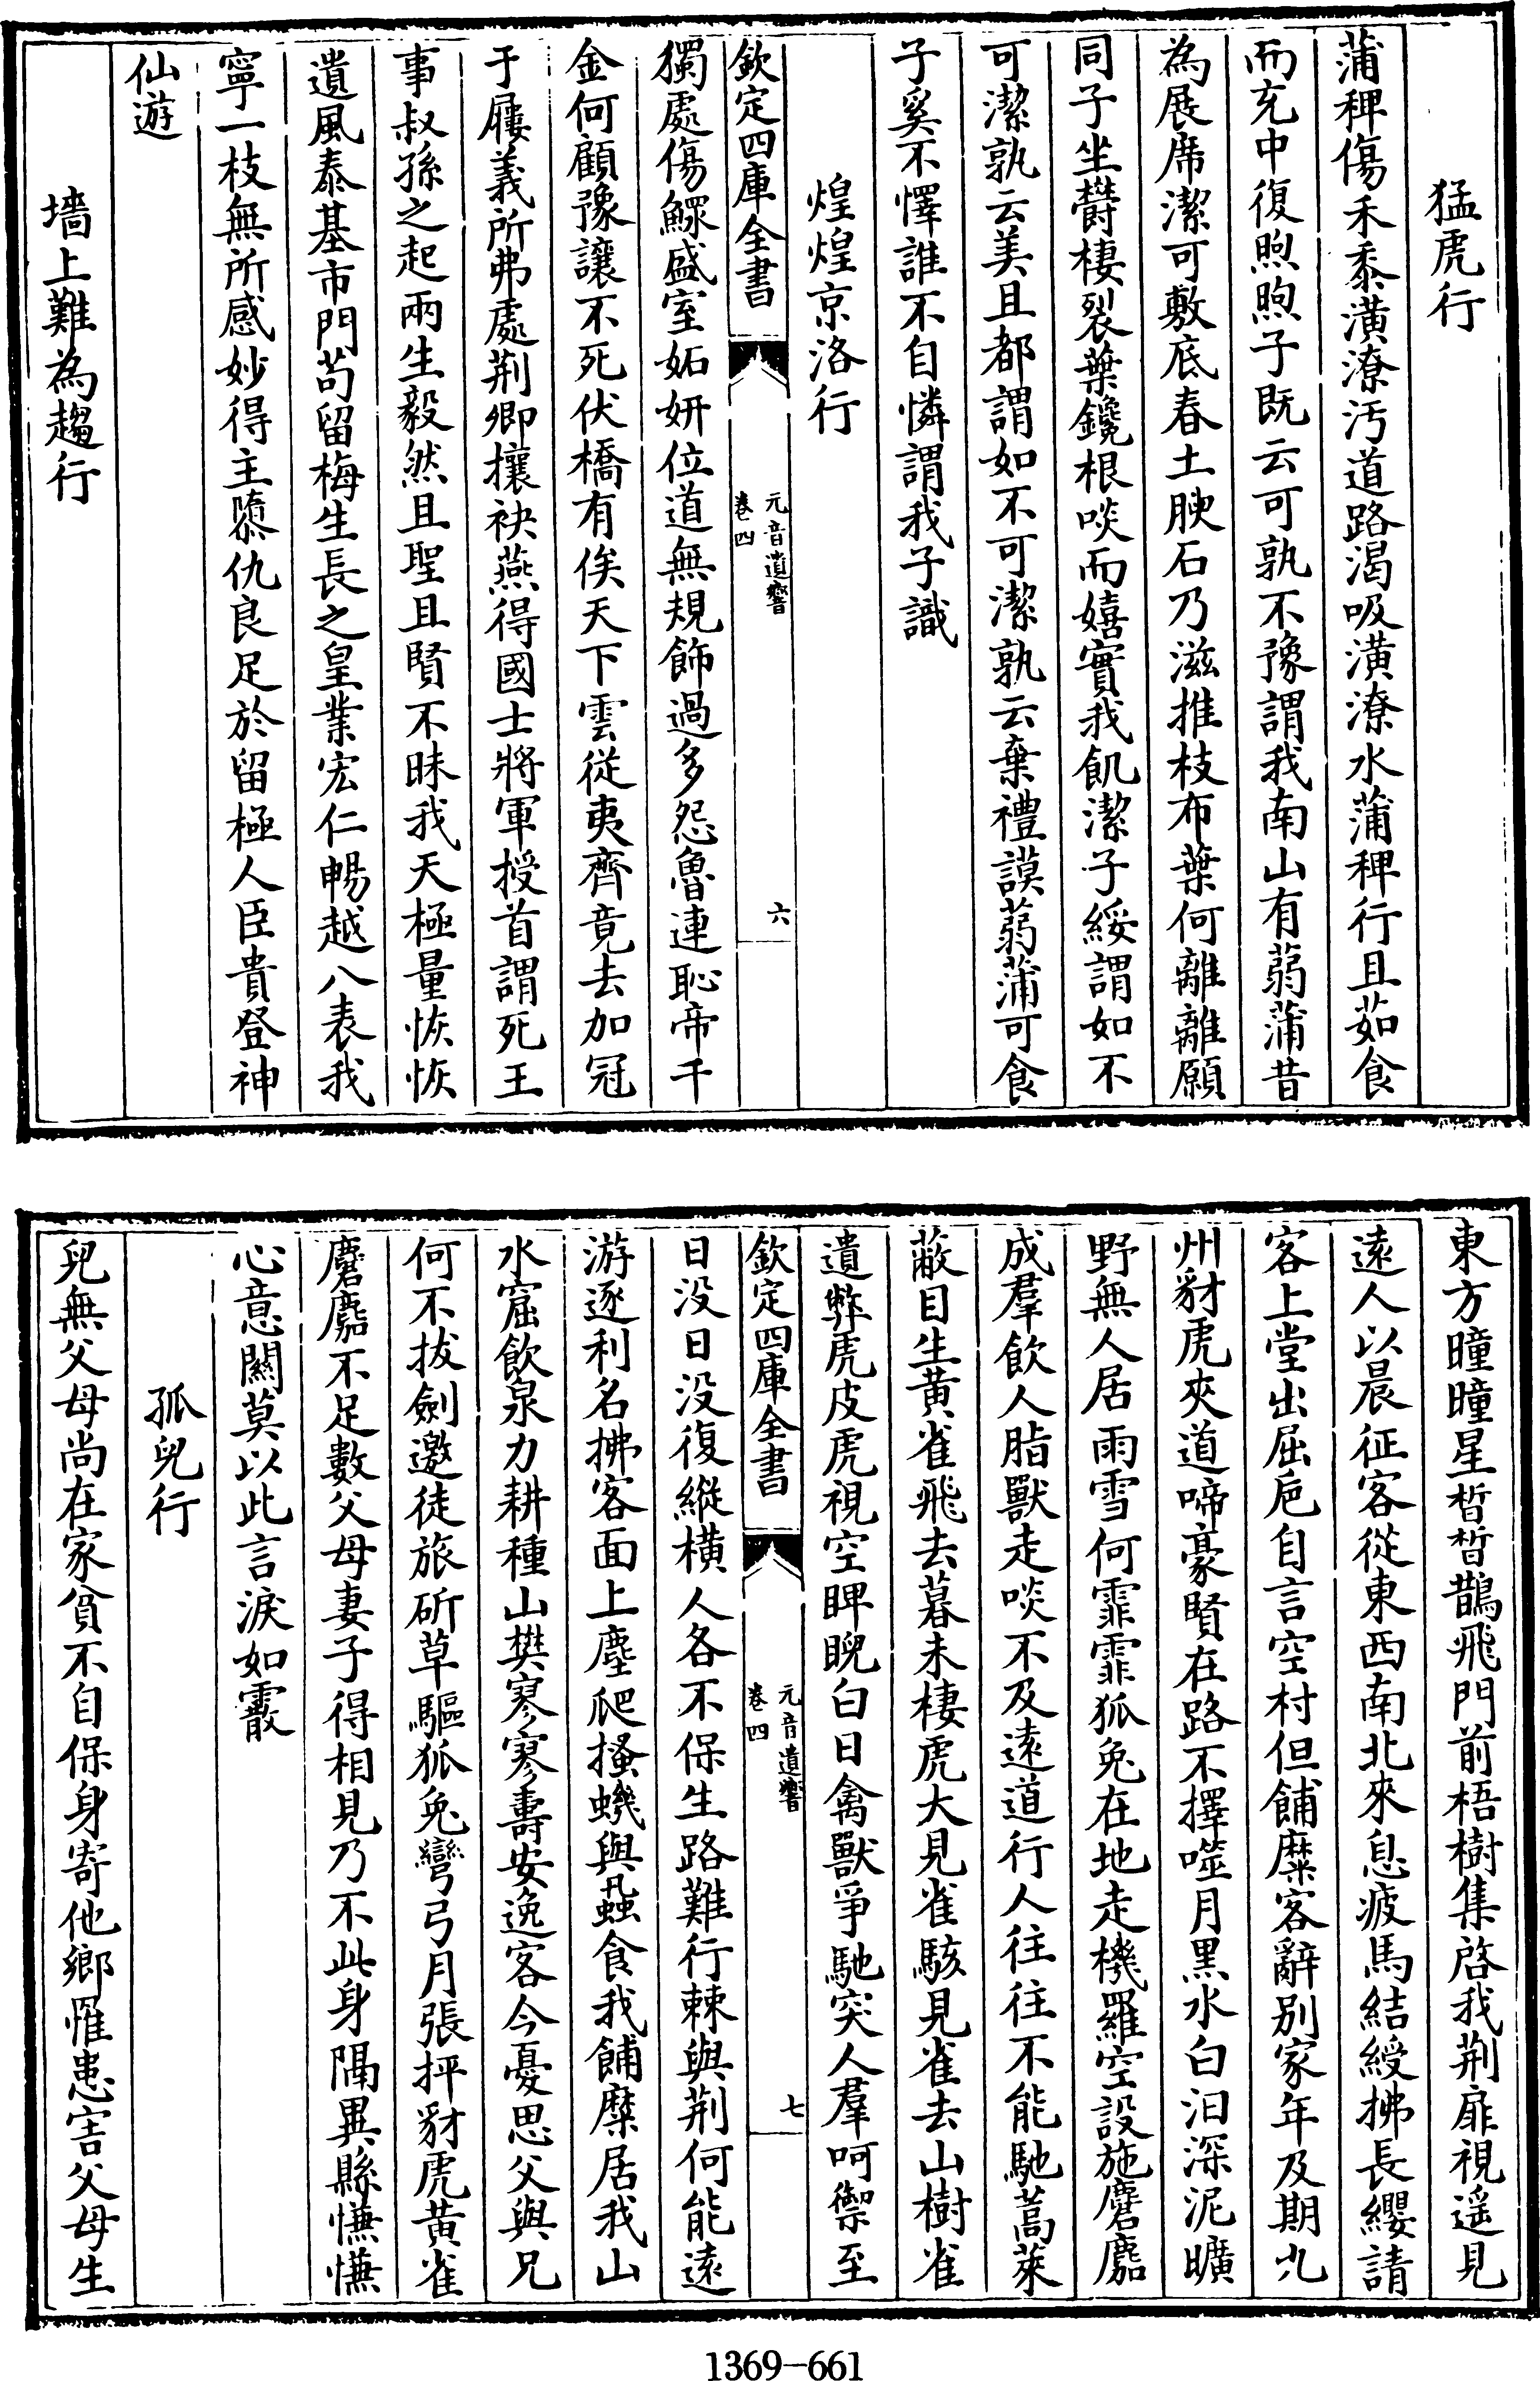 猛虎行
蒲稗傷禾黍潢潦汚道路渴吸潢潦水蒲稗行且茹食
而充中復煦煦子既云可孰不豫謂我南山有蒻蒲昔
為展席潔可敷底春土腴石乃滋推枝布葉何離離願
同子坐欝棲裂葉鑱根啖而嬉實我飢潔子綏謂如不
可潔孰云美且都謂如不可潔孰云棄禮謨蒻蒲可食
子奚不懌誰不自憐謂我子識
煌煌京洛行
欽定四庫全書
元音遺響
卷四
六
獨處傷鰥盛室妬妍位道無規飾過多怨魯連恥帝千
金何顧豫讓不死伏橋有俟天下雲從夷齊竟去加冠
于屨義所弗處荆卿攘袂燕得國士將軍授首謂死王
事叔孫之起兩生毅然且聖且賢不昧我天極量恢恢
遺風泰基市門苟留梅生長之皇業宏仁暢越八表我
寧一枝無所感妙得主隳仇良足於留極人臣貴登神
仙遊
墻上難為趨行
東方曈曈星晳晳鵲飛門前梧樹集啓我荆扉視遥見
遠人以晨征客從東西南北來息疲馬結綬拂長纓請
客上堂出屈卮自言空村但餔糜客辭别家年及期九
州豺虎夾道啼豪賢在路不擇噬月黒水白汨深泥曠
野無人居雨雪何霏霏狐兔在地走機羅空設施麏麚
成羣飲人脂獸走啖不及遠道行人往往不能馳蒿萊
蔽目生黄雀飛去暮未棲虎大見雀駭見雀去山樹雀
遺弊虎皮虎視空睥睨白日禽獸爭馳突人羣呵禦至
欽定四庫全書
元音遺響
卷四
七
日没日没復縱横人各不保生路難行棘與荆何能遠
游逐利名拂客面上塵爬搔蟣與蝨食我餔糜居我山
水窟飲泉力耕種山樊寥寥壽安逸客今憂思父與兄
何不拔劍邀徒旅斫草驅狐兔彎弓月張抨豺虎黄雀
麏麚不足數父母妻子得相見乃不此身隔異縣慊慊
心意闕莫以此言淚如霰
孤兒行
兒無父母尚在家貧不自保身寄他鄉罹患害父母生
1369-661